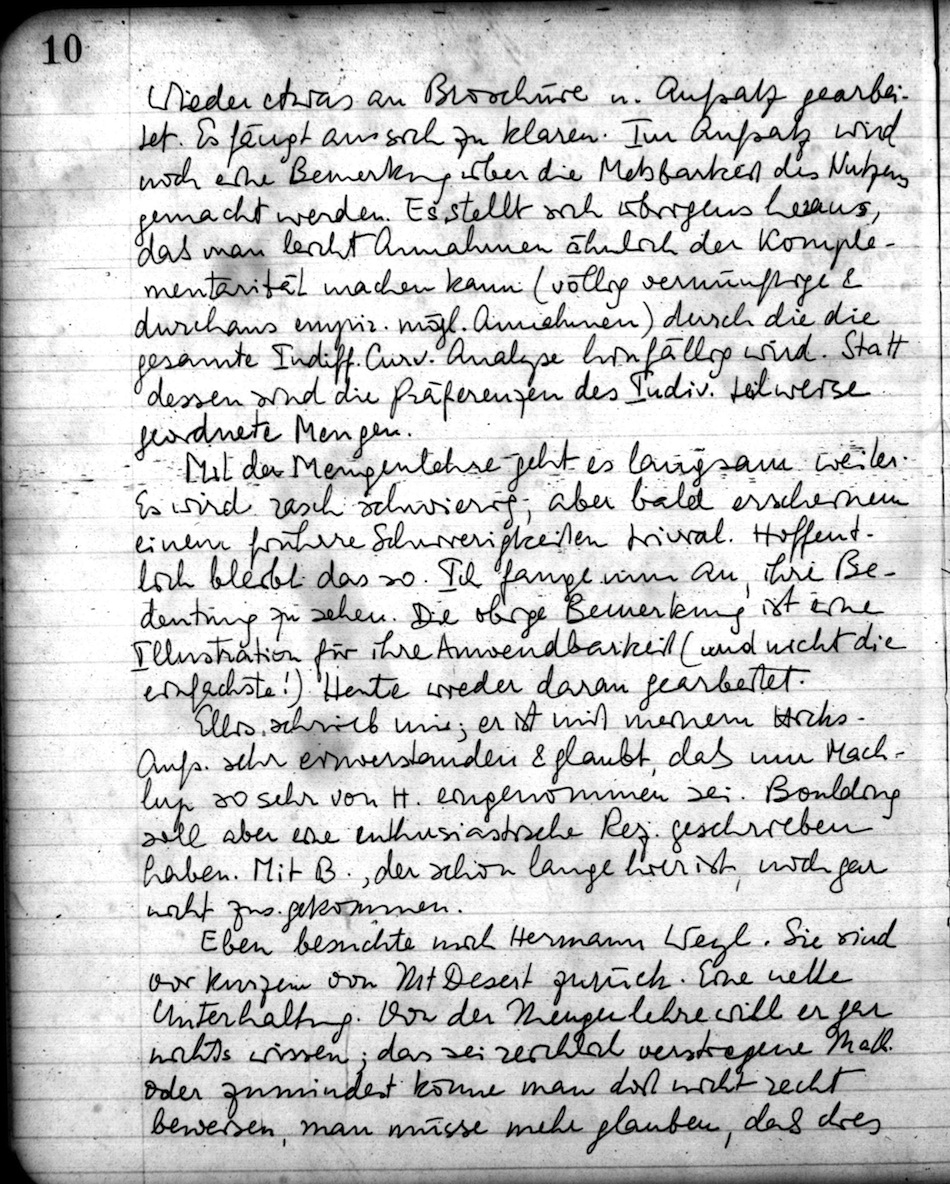 10
Wieder etwas an Broschüre u. Aufsatz gearbei-
tet. Es fängt an sich zu klären. Im Aufsatz wird
noch eine Bemerkung über die Meßbarkeit des Nutzens
gemacht werden. Es stellt sich übrigens heraus,
daß man leicht Annahmen ähnlich der Komple-
mentarität machen kann (völlig vernünftige &
durchaus empir. mögl. Annahmen) durch die die
gesamte Indiff. Curv. Analyse hinfällig wird. Statt
dessen sind die Präferenzen des Indiv. teilweise
geordnete Mengen.
Mit der Mengenlehre geht es langsam weiter.
Es wird rasch schwierig, aber bald erscheinen
einem frühere Schwierigkeiten trivial. Hoffent-
lich bleibt das so. Ich fange nun an, ihre Be-
deutung zu sehen. Die obige Bemerkung ist eine
Illustration für ihre Anwendbarkeit (und nicht die
einfachste!) Heute wieder daran gearbeitet.
Ellis schrieb mir; er ist mit meinem Hicks-
Aufs. sehr einverstanden & glaubt, daß nur Mach-
lup so sehr von H. eingenommen sei. Boulding
soll aber eine enthusiastische Rez. geschrieben
haben. Mit B., der schon lange hier ist, noch gar
nicht zus. gekommen.
Eben besuchte mich Hermann Weyl. Sie sind
vor kurzem von Mt Desert zurück. Eine nette
Unterhaltung. Von der Mengenlehre will er gar
nichts wissen; das sei reichlich verstiegene Math.
oder zumindest könne man dort nicht recht
beweisen, man müsse mehr glauben, daß dies